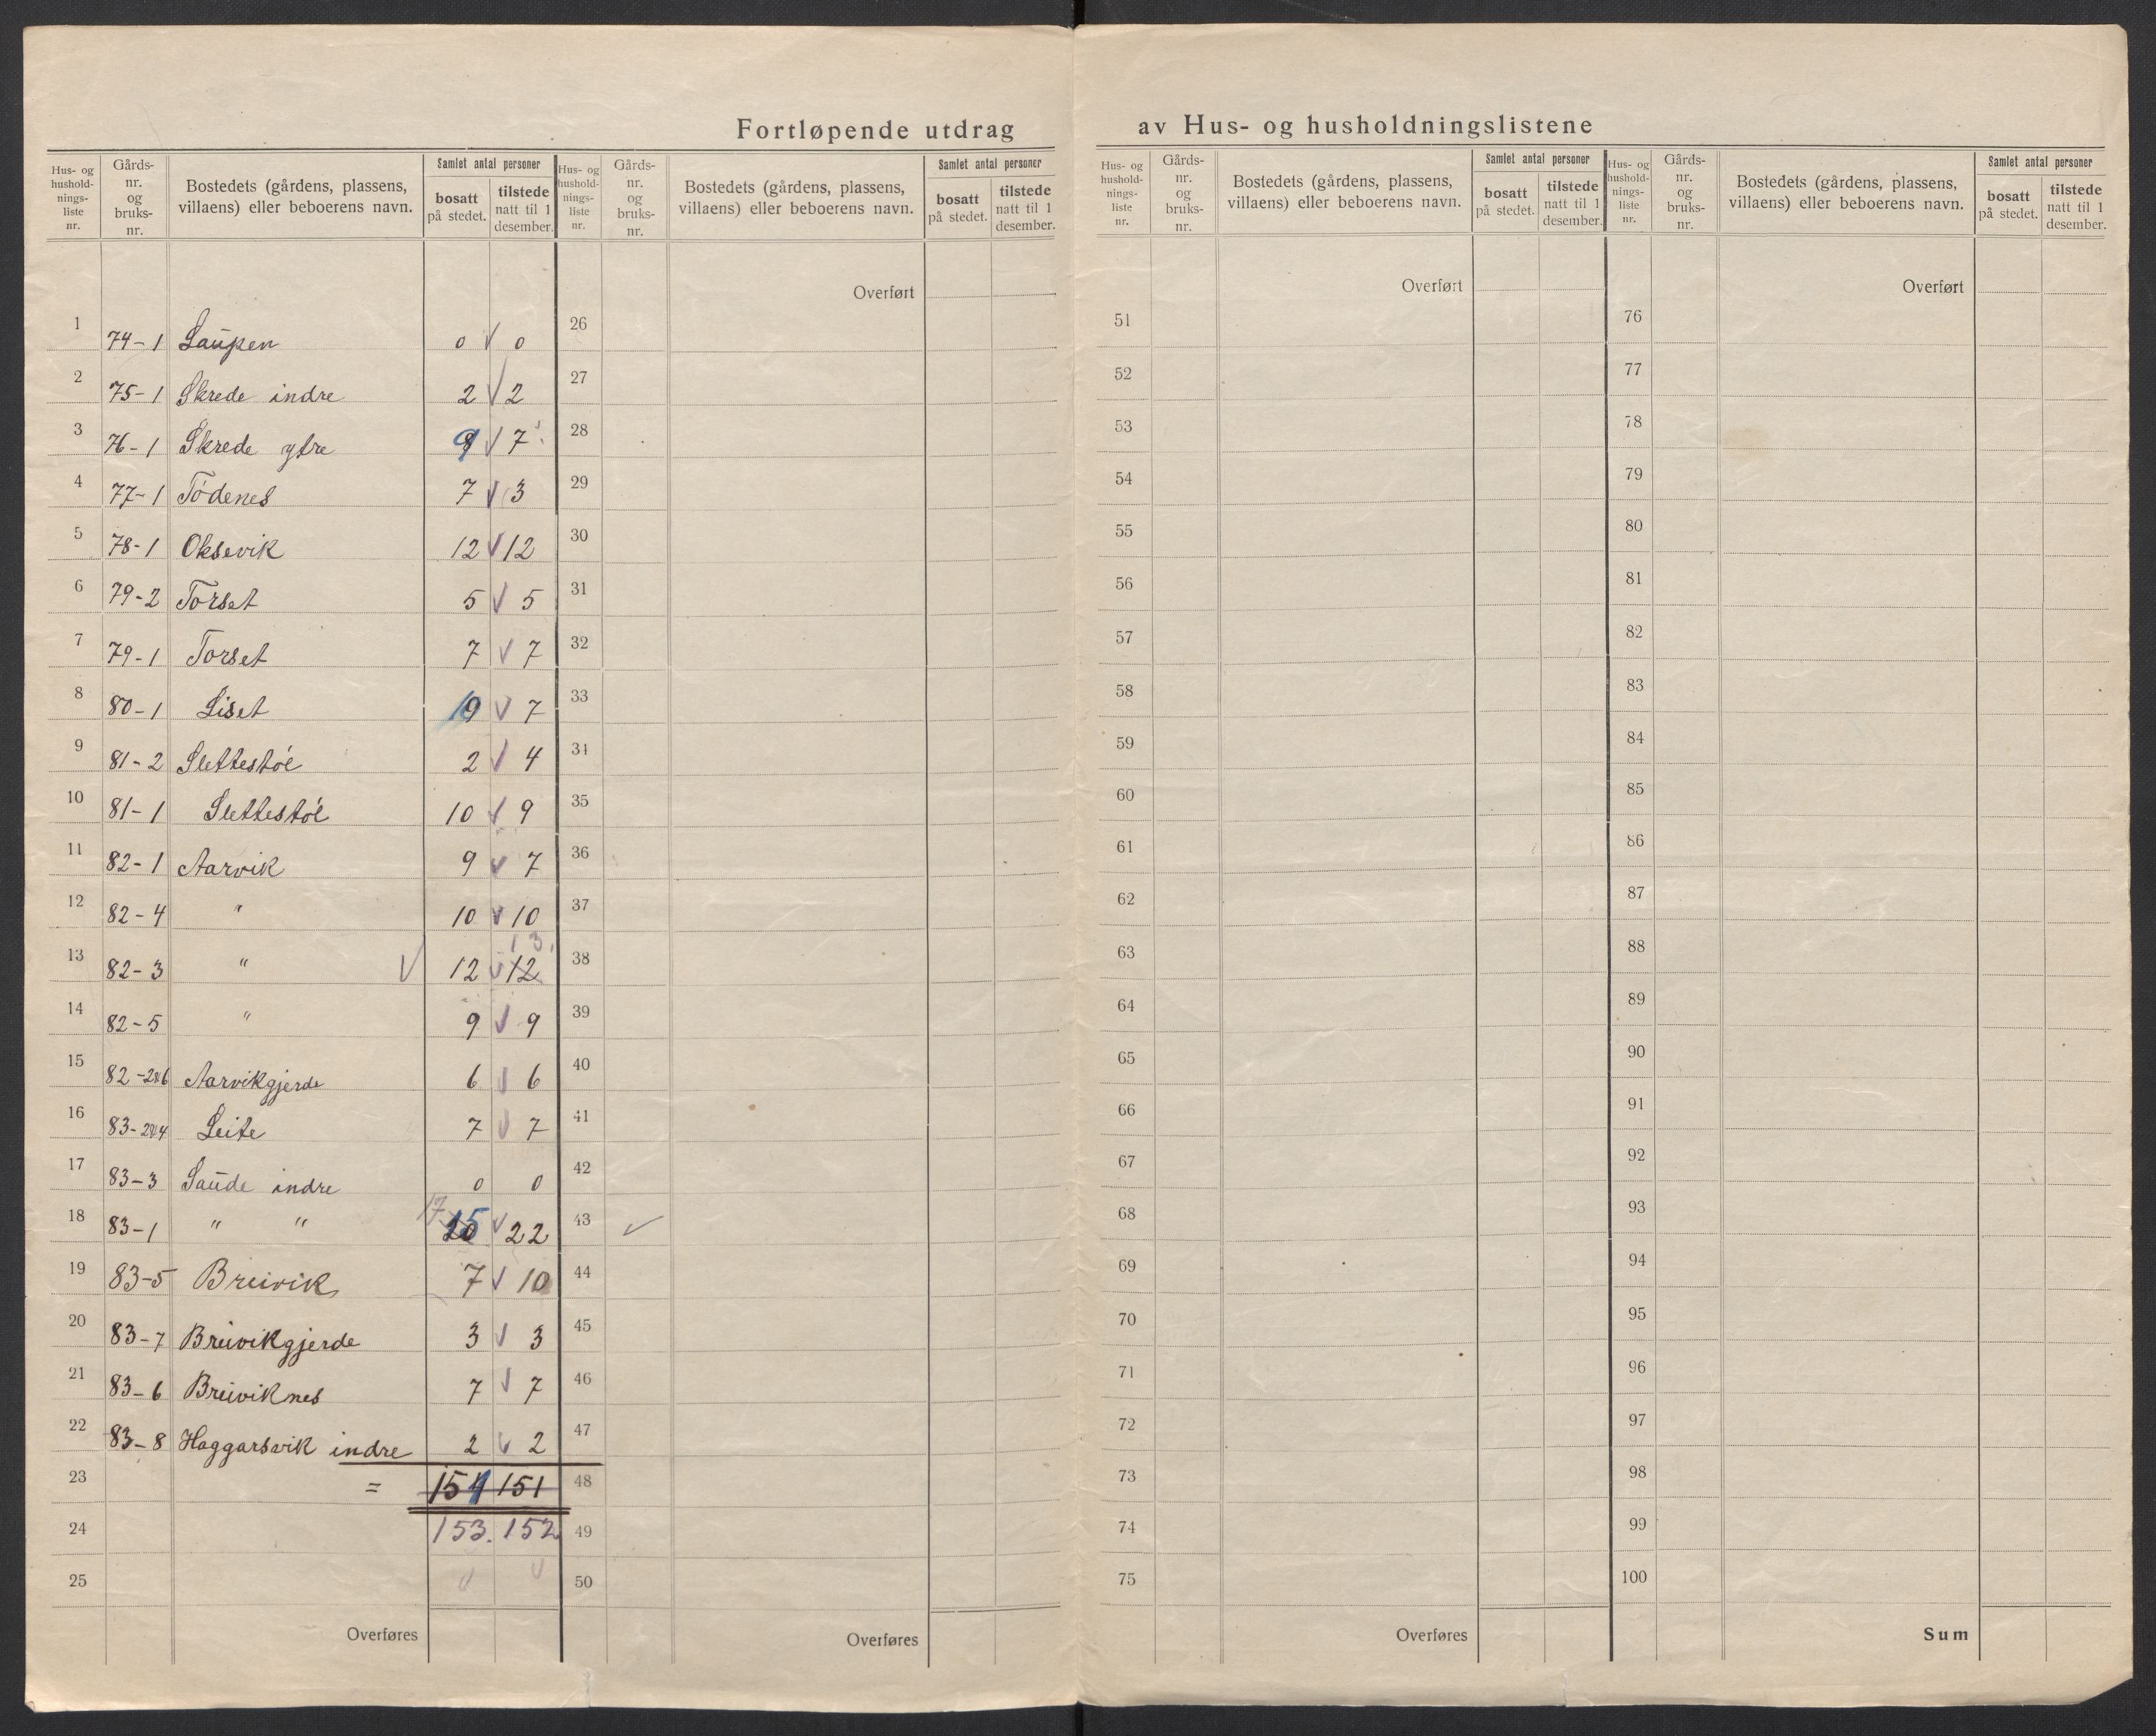 Fortløpende utdrag av Hus- og husholdningslistene
Hus- og hushold-nings-liste nr. Gårds-nr. og bruks-nr. Bostedets (gårdens, plassens, villaens) eller beboerens navn. Samlet antal personer bosatt på stedet. tilstede natt til 1 desember.
Hus- og hushold-nings-liste nr. Gårds-nr. og bruks-nr. Bostedets (gårdens, plassens, villaens) eller beboerens navn. Samlet antal personer bosatt på stedet. tilstede natt til 1 desember.
1 74-1 Laupen 0 √ 0
2 75-1 Skrede indre 2 √ 2
3 76-1 Skrede ytre 9 √ 7
4 77-1 Tödenes 7 √ 3
5 78-1 Oksevik 12 √ 12
6 79-2 Torset 5 √ 5
7 79-1 Torset 7 √ 7
8 80-1 Liset 10 √ 7
9 81-2 Slettestöl 2 √ 4
10 81-1 Slettestöl 10 √ 9
11 82-1 Aarvik 9 √ 7
12 82-4 " 10 √ 10
13 82-3 " √ 12 √ 12 13
14 82-5 " 9 √ 9
15 82-2&6 Aarvikgjerde 6 √ 6
16 83-2&4 Leite 7 √ 7
17 83-3 Saude indre 0 0
18 83-1 " " 17 15 √ 22
19 83-5 Breivik 7 √ 10
20 83-7 Breivikgjerde 3 √ 3
21 83-6 Breiviknes 7 √ 7
22 83-8 Haggarsvik indre 2 √ 2
23 = 151 151
24 153. 152
25 √ √
Overføres
Overført
26
27
28
29
30
31
32
33
34
35
36
37
38
39
40
41
42
43 √
44
45
46
47
48
49
50
Overføres
Hus- og hushold-nings-liste nr. Gårds-nr. og bruks-nr. Bostedets (gårdens, plassens, villaens) eller beboerens navn. Samlet antal personer bosatt på stedet. tilstede natt til 1 desember.
Hus- og hushold-nings-liste nr. Gårds-nr. og bruks-nr. Bostedets (gårdens, plassens, villaens) eller beboerens navn. Samlet antal personer bosatt på stedet. tilstede natt til 1 desember.
Overført
51
52
53
54
55
56
57
58
59
60
61
62
63
64
65
66
67
68
69
70
71
72
73
74
75
Overføres
Overført
76
77
78
79
80
81
82
83
84
85
86
87
88
89
90
91
92
93
94
95
96
97
98
99
100
Sum